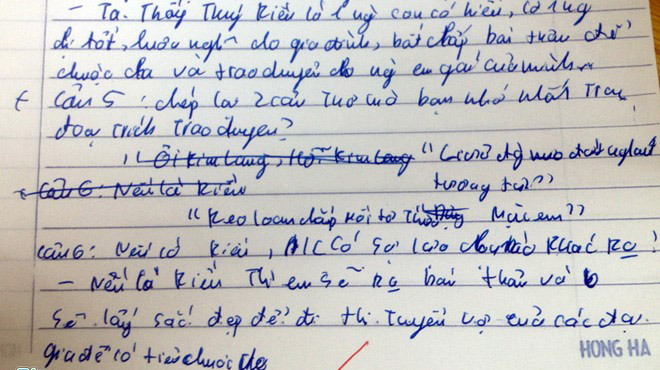 - Ta. Thấy Thuý Kiều là 1 ng` con có hiếu, là 1 ng
chị tốt, luôn nghĩ cho gia đình, bất chấp bản thân để
chuộc cha và trao duyên cho ng` em gái của mình.
Câu 5 : chép lại 2 câu thơ mà bạn nhớ nhất trong
đoạn trích Trao duyên?
"Ôi Kim Lang, Hỡi Kim Lang "Giữa đg đứt gánh
Câu 6: Nếu là Kiều tương tư"
"Keo loan chắp mối tơ Thừa Mặc em"
Câu 6: Nếu là Kiều, A/C có sự lựa chọn nào khác ko!
- Nếu là Kiều Thì em sẽ ko bán thân và
sẽ lấy sắc đẹp để đi thi tuyển vợ của các đại
gia để có tiền chuộc cha
HONG HA